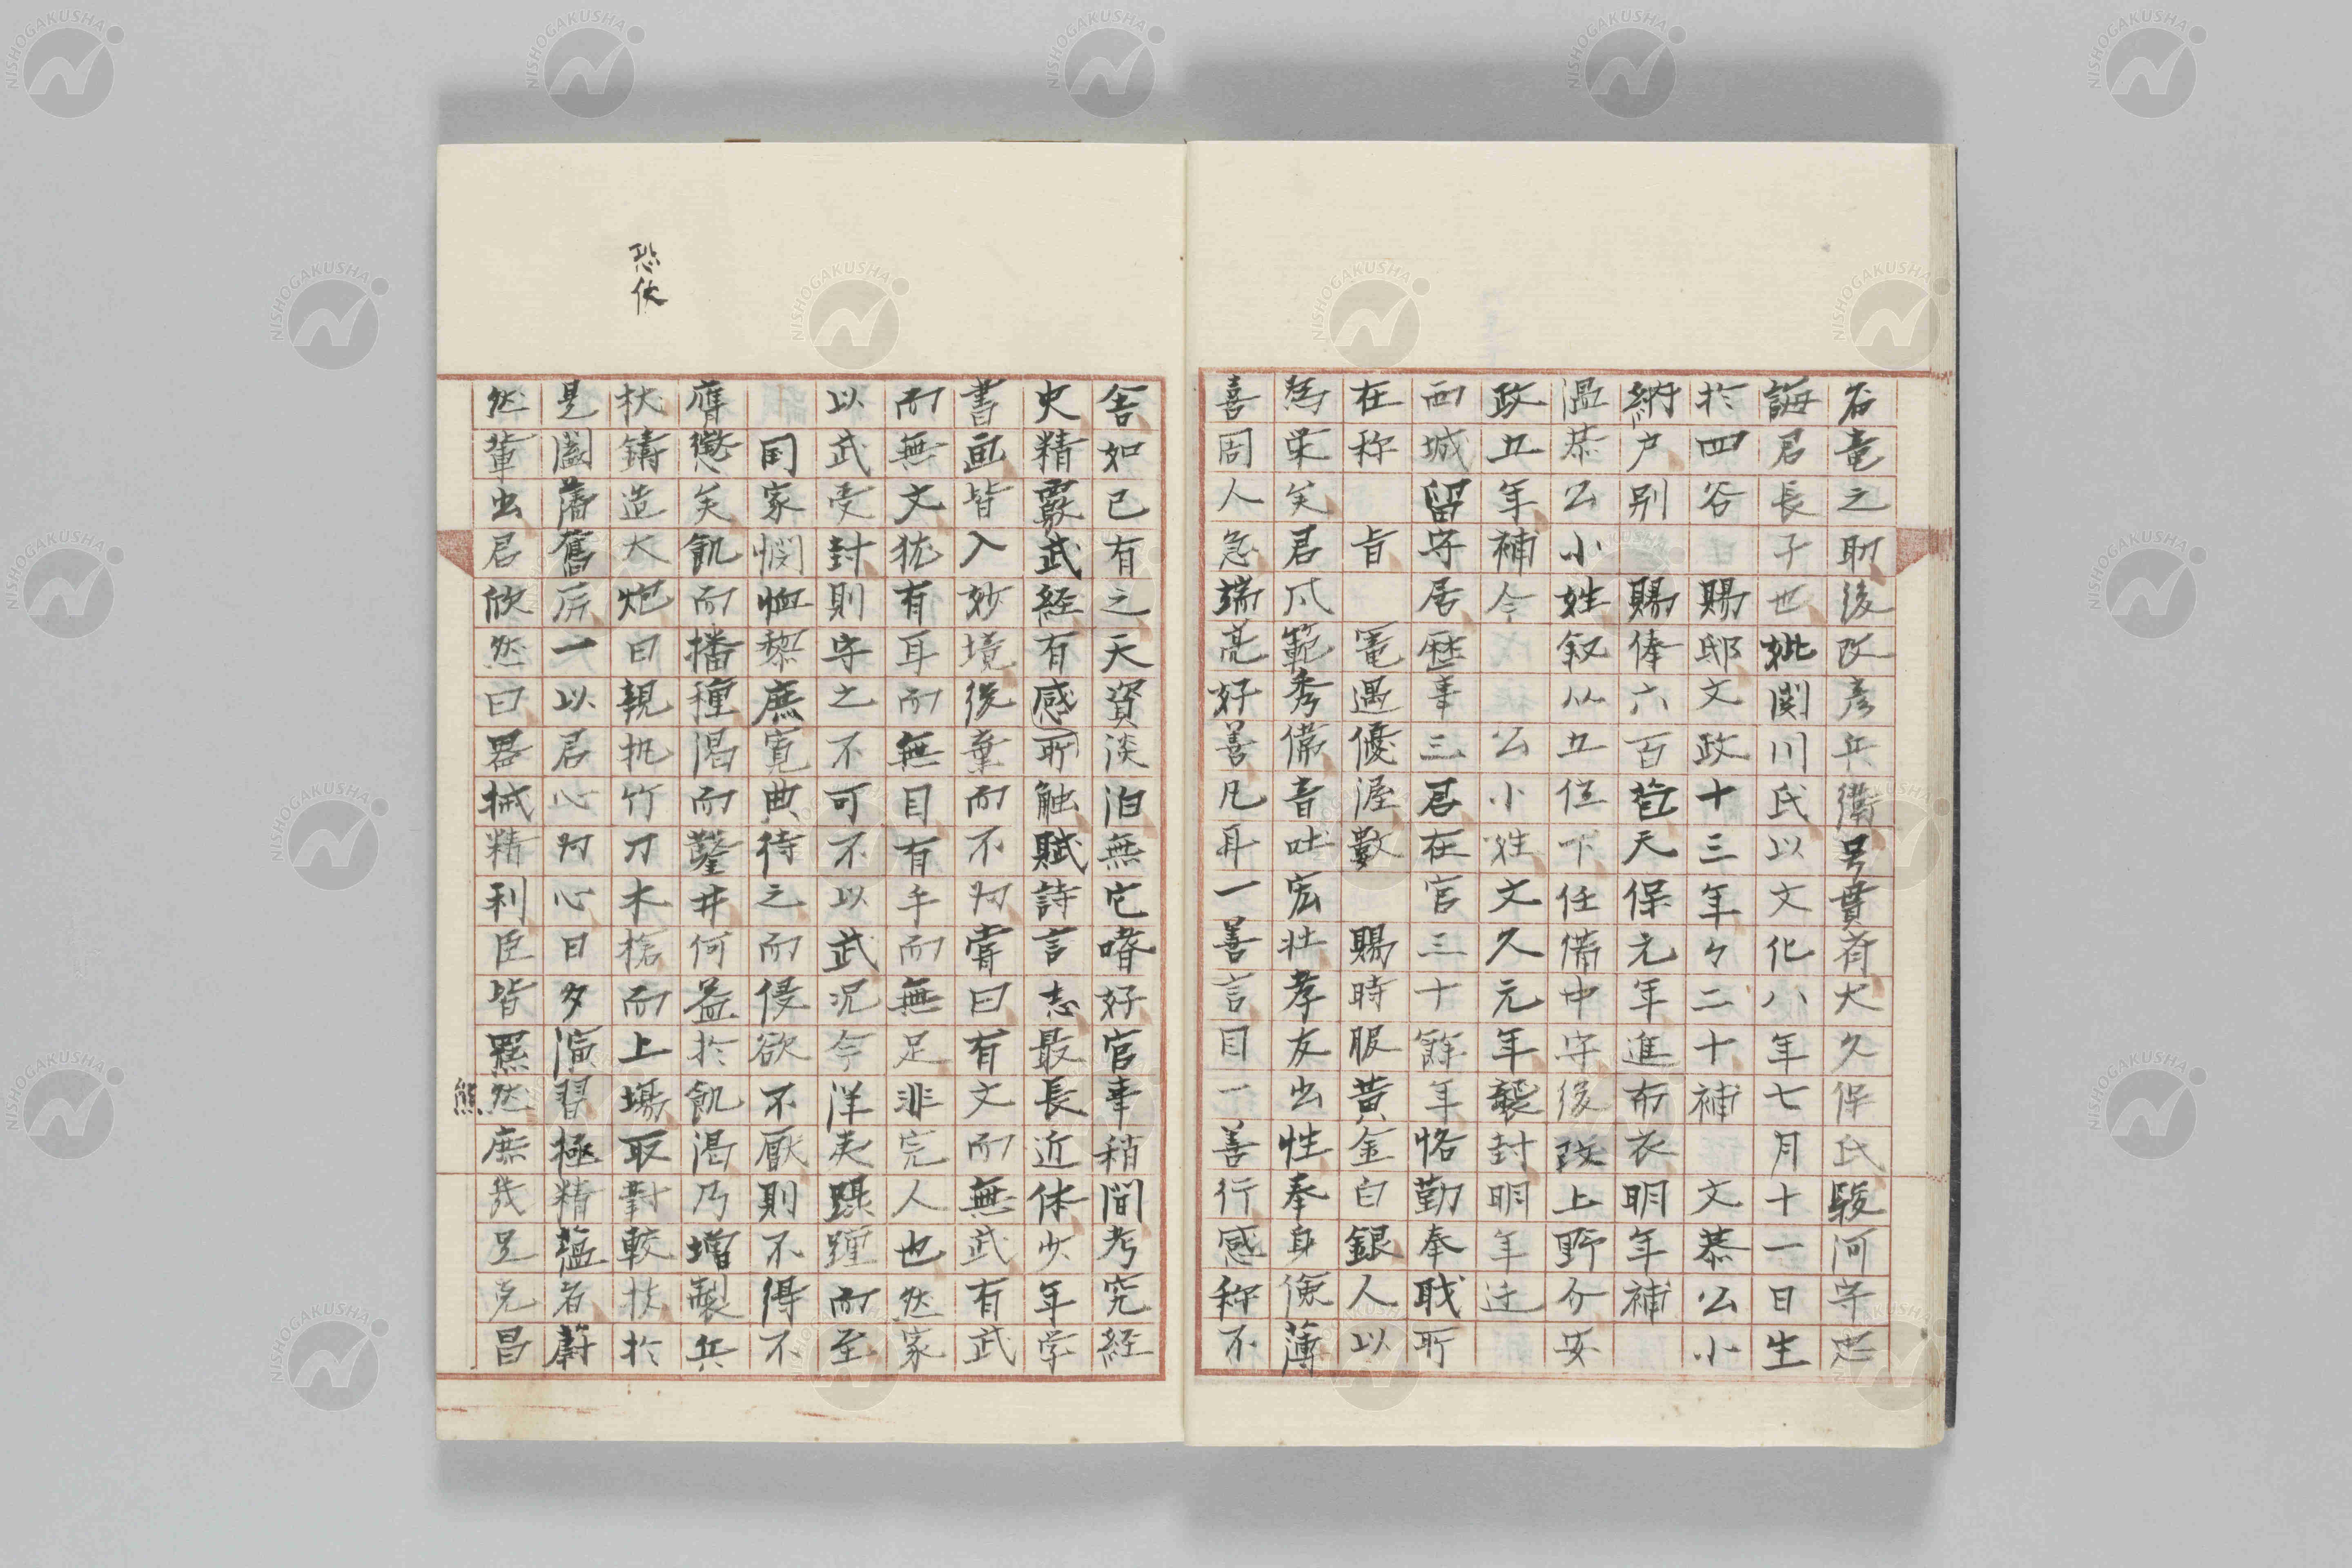 谷竜之助後改彦兵衛号蕢斎大久保氏駿河守忠
誨君長子也妣関川氏以文化八年七月十一日生
於四谷 賜邸文政十三年々二十補 文恭公小
納戸别 賜俸六百苞天保元年進布衣明年補
温恭公小姓叙从五位下任備中守後改上野介安
政五年補今 公小姓文久元年襲封明年迁
西城留守居歴事三君在官三十餘年恪勤奉職所
在称 旨 寵遇優渥數 賜時服黄金白銀人以
為栄矣君爪範秀備音吐宏壮孝友出性奉身儉薄
喜周人急端亮好善凡耳一善言目一善行感称不
舍如已有之天資淡泊無它嗜好官事稍間考究経
史精覈武経有感所触賦詩言志最長近体少年学
書画皆入妙境後棄而不为嘗曰有文而無武有武
而無文犹有耳而無目有手而無足非完人也然家
以武受封則守之不可不以武況今洋夷蹑踵而至
国家憫恤黎庶寛典待之而侵欲不厭則不得不
膺懲矣飢而播種渇而鑿井何益於飢渇乃増製兵
杖鋳造大炮日親执竹刀木槍而上場取對較技於
是闔藩奮厉一以君心为心日夕演習極精蘊者蔚
然輩出君欣然曰器械精利臣皆羆然庶幾足克昌
恐伙
熊